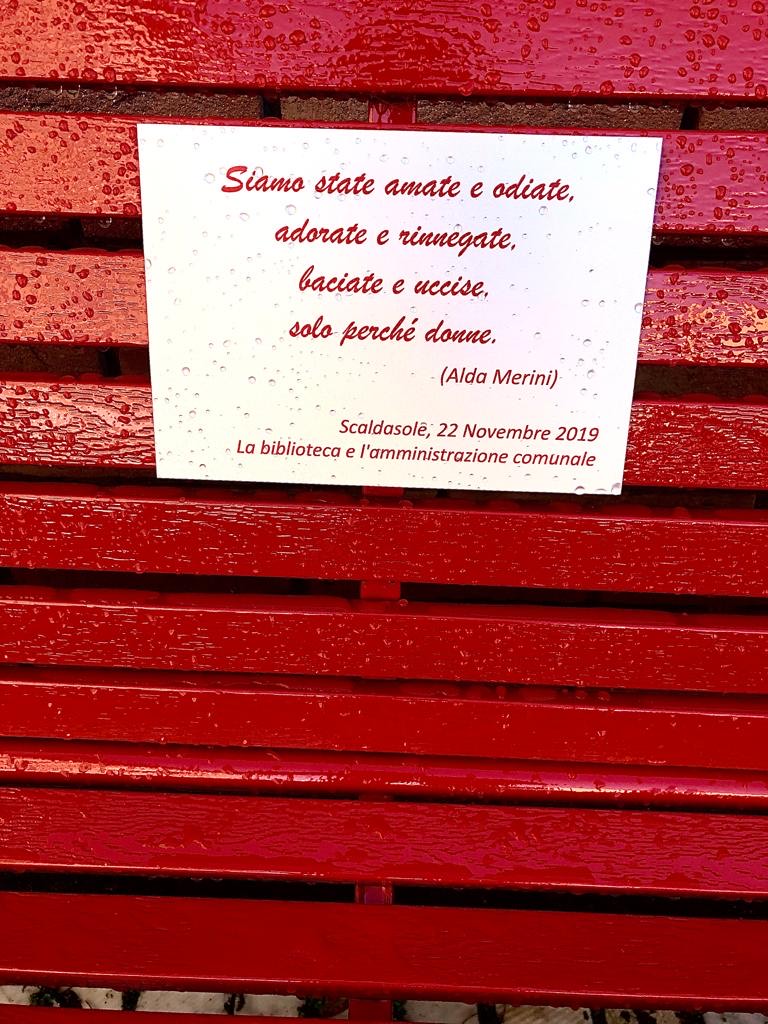 Siamo state amate e odiate,
adorate e rinnegate,
baciate e uccise,
solo perché donne.
(Alda Merini)
Scaldasole, 22 Novembre 2019
La biblioteca e l'amministrazione comunale